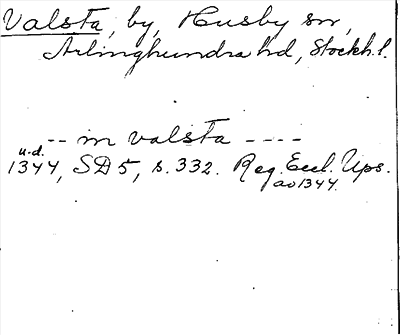 Valsta, by, Husby sn,
Ärlinghundra hd, Stockh.l.
-- in valsta ----
u.d.
1344, SD 5, s. 332. Reg. Eccl. Ups.
av 1344.